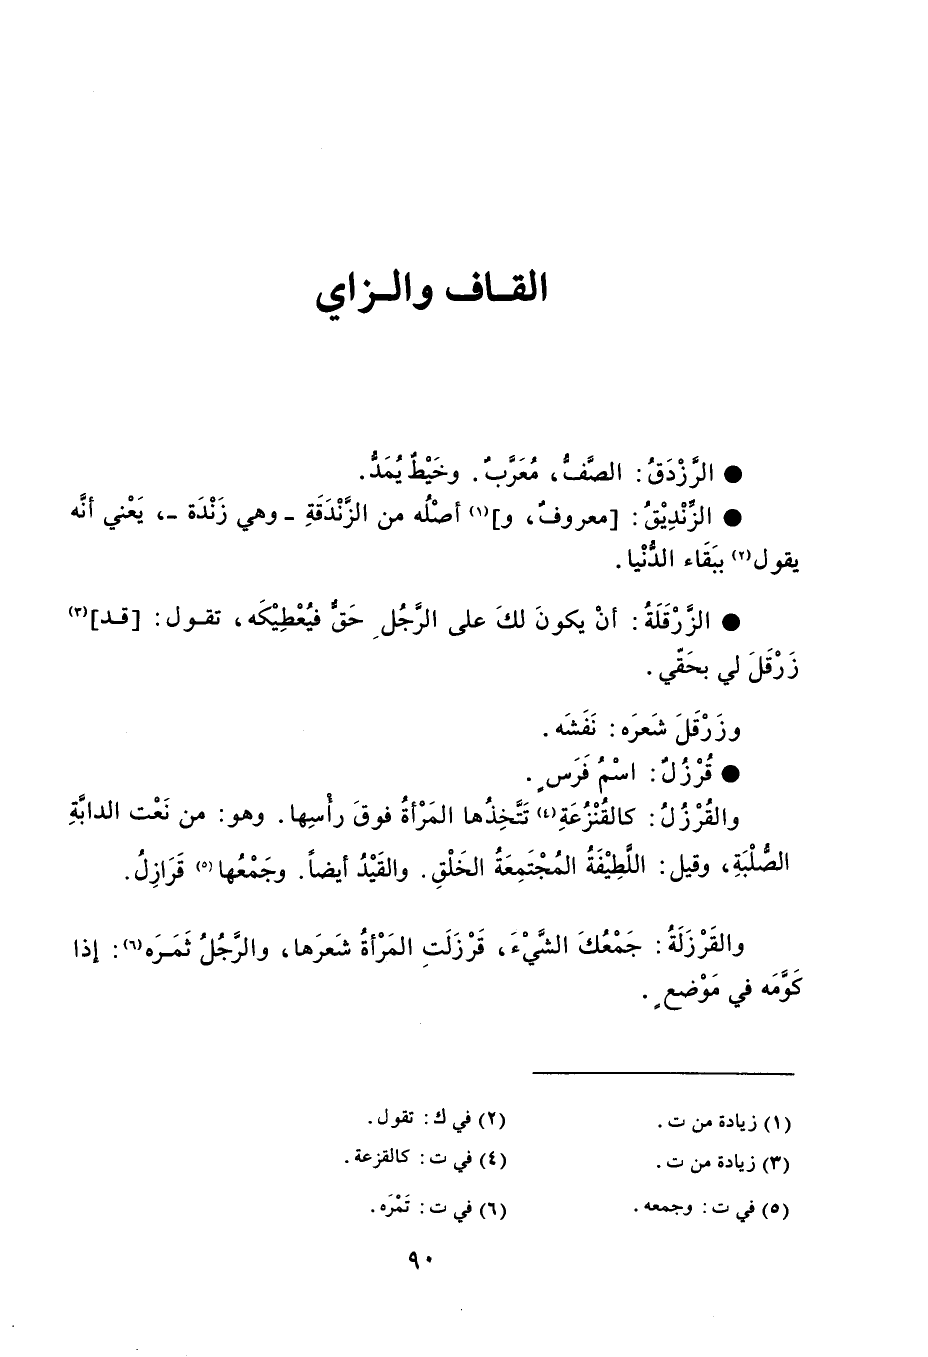 القـاف والـزاي
● الرَّزْدَقُ: الصَّفُّ، مُعَرَّبٌ. وخَيْطٌ يُمَدُّ.
● الزِّنْدِيْقُ: [معروفٌ، و](١) أصْلُه من الزَّنْدَقَةِ ـ وهي زَنْدَة ـ، يَعْني أنَّه
يقول(٢) بِبَقَاء الدُّنْيا.
● الزَّرْقَلَةُ: أنْ يكونَ لكَ على الرَّجُلِ حَقٌّ فيُعْطِيْكَه، تقـول: [قـد](٣)
زَرْقَلَ لي بحَقّي.
وزَرْقَلَ شَعرَه: نَفَشَه.
● قُرْزُلٌ: اسْمُ فَرَسٍ.
والقُرْزُلُ: كالقُنْزُعَةِ(٤) تَتَّخِذُها المَرْأةُ فوقَ رأْسِها. وهو: من نَعْت الدابَّةِ
الصُّلْبَةِ، وقيل: اللَّطِيْفَةُ المُجْتَمِعَةُ الخَلْقِ. والقَيْدُ أيضاً. وجَمْعُها(٥) قَرَازِلُ.
والقَرْزَلَةُ: جَمْعُكَ الشَّيْءَ، قَرْزَلَتِ المَرْأةُ شَعرَها، والرَّجُلُ ثَمَـرَه(٦): إذا
كَوَّمَه في مَوْضعٍ.
(١) زيادة من ت. (٢) في ك: تقول.
(٣) زيادة من ت. (٤) في ت: كالقزعة.
(٥) في ت: وجمعه. (٦) في ت: تَمْرَه.
٩٠